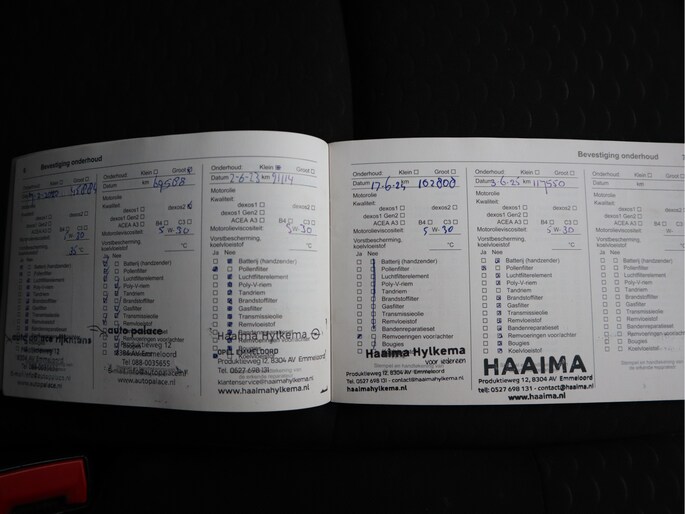 Bevestiging onderhoud
Onderhoud: Klein Groot
Datum km 45884
Motorolie
Kwaliteit:
dexos1 dexos2
dexos1 Gen2
ACEA A3 B4 C3
Motorolieviscositeit:
Vorstbescherming,
koelvloeistof
Ja Nee
Batterij (handzender)
Pollenfilter
Luchtfilterelement
Poly-V-riem
Tandriem
Brandstoffilter
Gasfilter
Transmissieolie
Remvloeistof
Onderhoud: Klein Groot
Datum km 69588
Motorolie
Kwaliteit:
dexos1 dexos2
dexos1 Gen2
ACEA A3 B4 C3
Motorolieviscositeit: 5 W- 30
Vorstbescherming,
koelvloeistof
°C
Ja Nee
Batterij (handzender)
Pollenfilter
Luchtfilterelement
Poly-V-riem
Tandriem
Brandstoffilter
Gasfilter
Transmissieolie
Remvloeistof
auto palace
8304 AV Emmeloord
Tel 088-0035655
www.autopalace.nl
Onderhoud: Klein Groot
Datum 2-6-23 km 91114
Motorolie
Kwaliteit:
dexos1 dexos2
dexos1 Gen2
ACEA A3 B4 C3
Motorolieviscositeit: 5 W- 30
Vorstbescherming,
koelvloeistof
°C
Ja Nee
Batterij (handzender)
Pollenfilter
Luchtfilterelement
Poly-V-riem
Tandriem
Brandstoffilter
Gasfilter
Transmissieolie
Remvloeistof
Haaima Hylkema
OPEL EMMELOORD
Produktieweg 12, 8304 AV Emmeloord
Tel. 0527 698 131
klantenservice@haaimahylkema.nl
www.haaimahylkema.nl
Datum 17-6-24 102808
Motorolie
Kwaliteit:
dexos1 dexos2
dexos1 Gen2
ACEA A3 B4 C3
Motorolieviscositeit: 5 W- 30
Vorstbescherming,
koelvloeistof
°C
Ja Nee
Batterij (handzender)
Pollenfilter
Luchtfilterelement
Poly-V-riem
Tandriem
Brandstoffilter
Gasfilter
Transmissieolie
Remvloeistof
Bandenreparatieset
Remvoeringen voor/achter
Bougies
Haaima Hylkema
voor iedereen
Produktieweg 12, 8304 AV Emmeloord
Tel. 0527 698 131 - contact@haaimahylkema.nl
www.haaimahylkema.nl
Bevestiging onderhoud
Onderhoud: Klein Groot
Datum 3-6-25 km 117550
Motorolie
Kwaliteit:
dexos1 dexos2
dexos1 Gen2
ACEA A3 B4 C3
Motorolieviscositeit: 5 W- 30
Vorstbescherming,
koelvloeistof
°C
Ja Nee
Batterij (handzender)
Pollenfilter
Luchtfilterelement
Poly-V-riem
Tandriem
Brandstoffilter
Gasfilter
Transmissieolie
Remvloeistof
Bandenreparatieset
Remvoeringen voor/achter
Bougies
Koelvloeistof
HAAIMA
Produktieweg 12, 8304 AV Emmeloord
tell: 0527 698 131 - contact@haaima.nl
www.haaima.nl
Onderhoud: Klein Groot
Datum km
Motorolie
Kwaliteit:
dexos1
dexos1 Gen2
ACEA A3 B4
Motorolieviscositeit: W-
Vorstbescherming,
koelvloeistof
Ja Nee
Batterij (handzender)
Pollenfilter
Luchtfilterelement
Poly-V-riem
Tandriem
Brandstoffilter
Gasfilter
Transmissieolie
Remvloeistof
Bandenreparatieset
Remvoeringen voor/achter
Bougies
Koelvloeistof